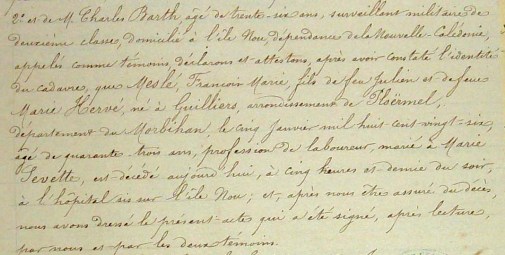 2° et de M. Charles Barth, âgé de trente-six ans, surveillant militaire de
deuxième classe, domicilié à l'île Nou, dépendance de la Nouvelle-Calédonie,
appelés comme témoins, déclarons et attestons, après avoir constaté l'identité
du cadavre, que Meslé, François Marie, fils de feu Julien et de feue
Marie Hervé, né à Guilliers, arrondissement de Ploërmel,
département du Morbihan, le cinq Janvier mil huit cent vingt-six,
âgé de quarante-trois ans, profession de laboureur, marié à Marie
Jevette, est décédé aujourd'hui, à cinq heures et demie du soir,
à l'hôpital sis sur l'île Nou; et, après nous être assuré du décès,
nous avons dressé le présent acte qui a été signé, après lecture,
par nous et par les deux témoins.